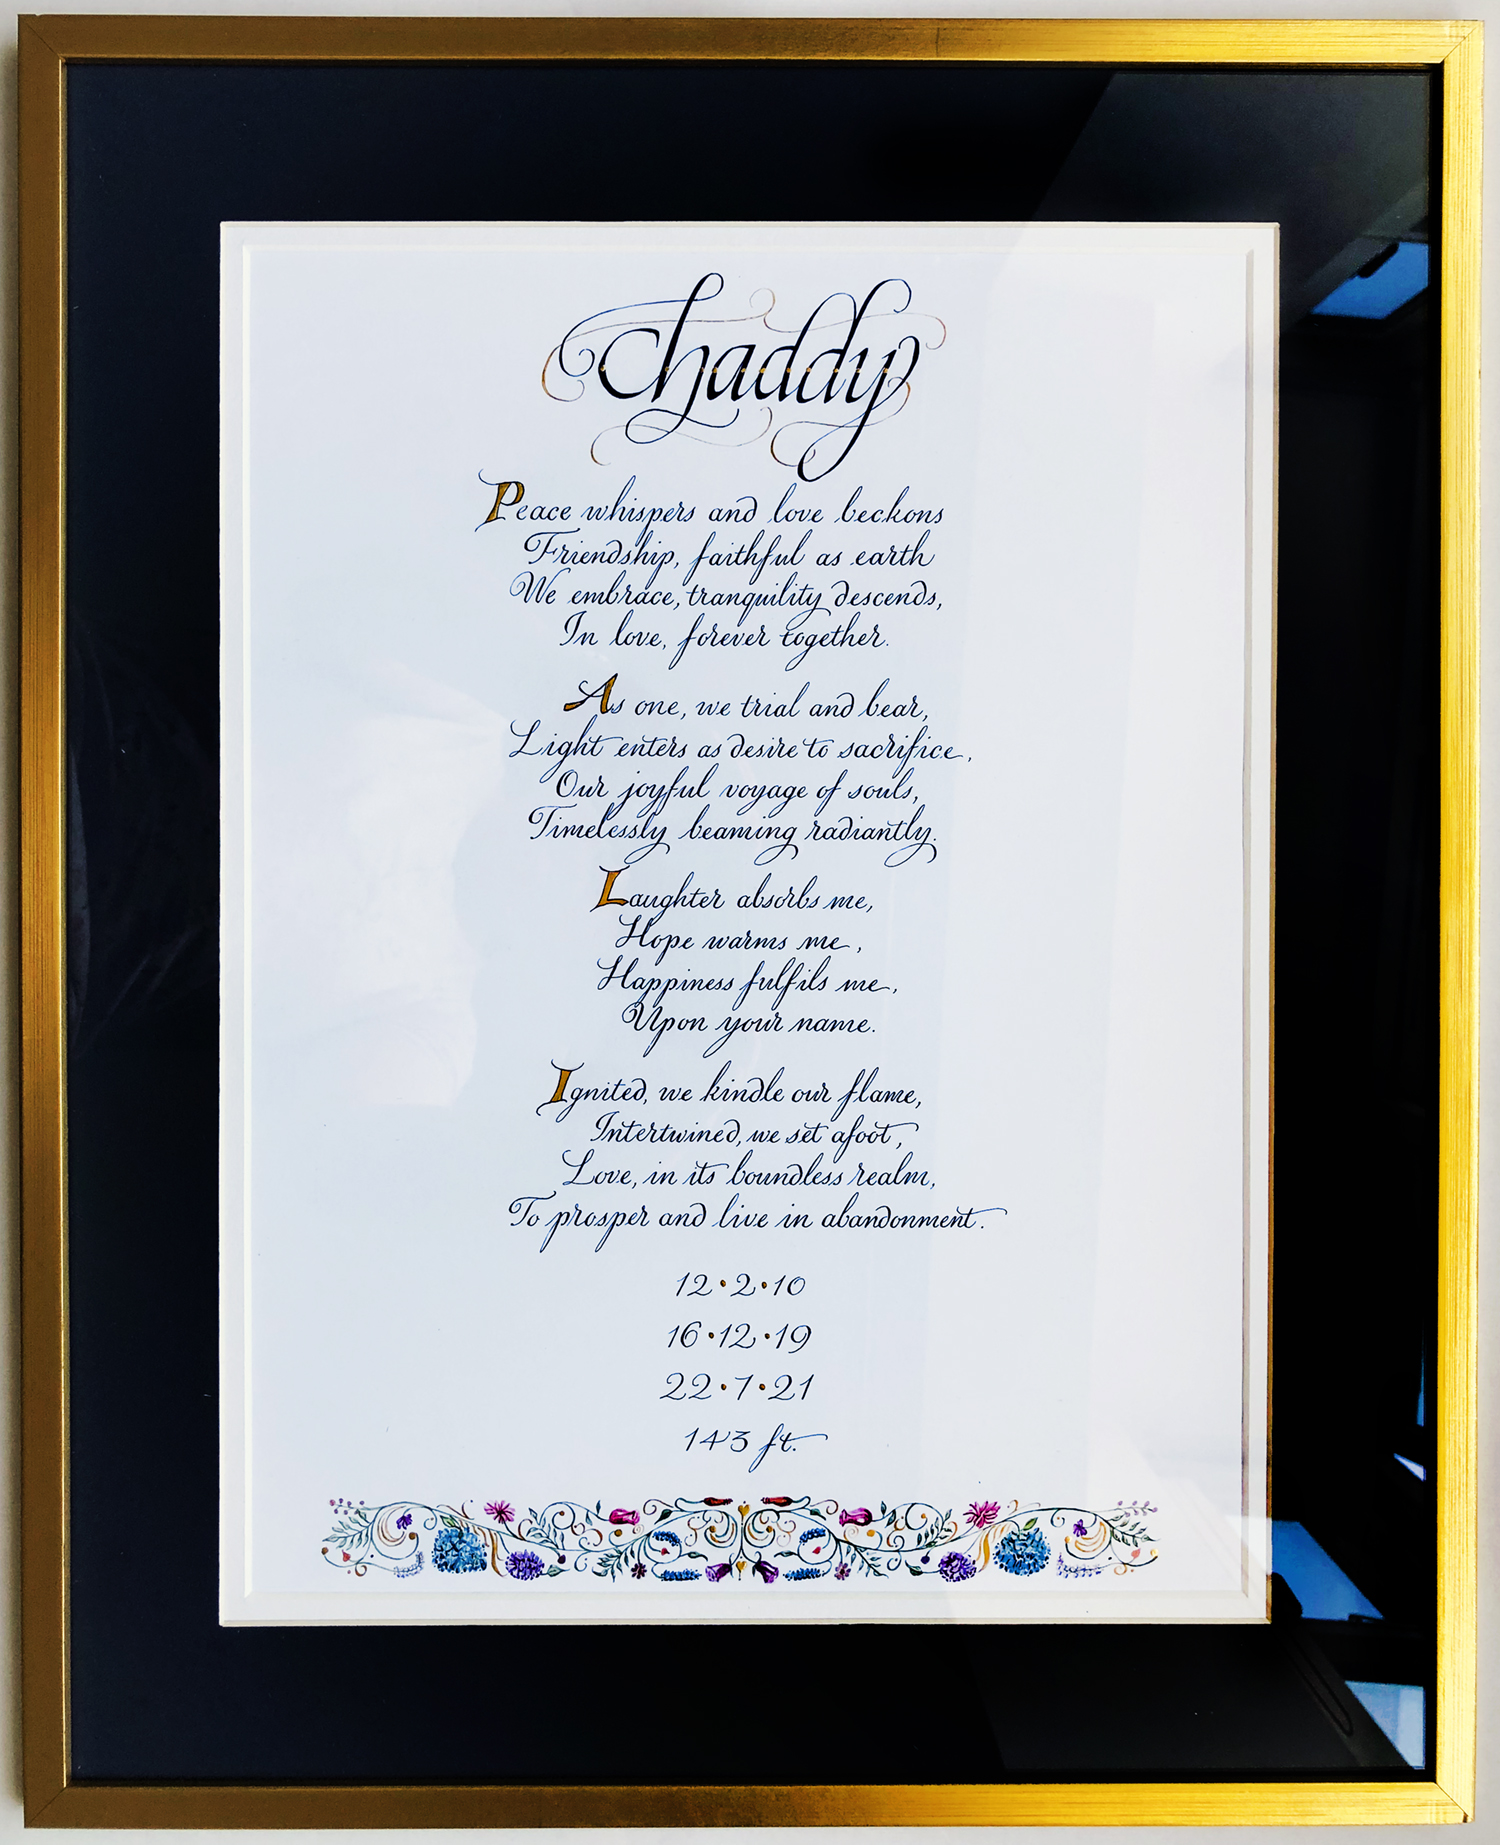 Chaddy
Peace whispers and love beckons
Friendship, faithful as earth
We embrace, tranquility descends,
In love, forever together.
As one, we trial and bear,
Light enters as desire to sacrifice,
Our joyful voyage of souls,
Timelessly beaming radiantly.
Laughter absorbs me,
Hope warms me,
Happiness fulfils me,
Upon your name.
Ignited, we kindle our flame,
Intertwined, we set afoot,
Love, in its boundless realm,
To prosper and live in abandonment.
12·2·10
16·12·19
22·7·21
143 ft.